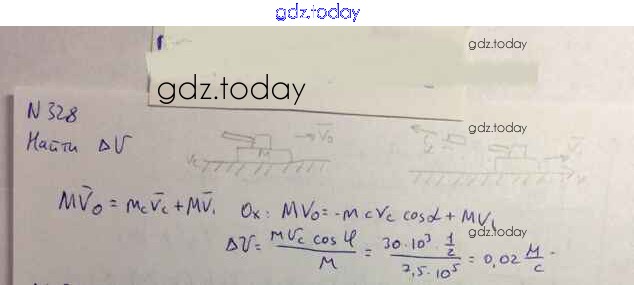 gdz.today
gdz.today
gdz.today
N 328
Найти ΔV
V₀
M
gdz.today
V₁
MV̄₀ = m_c V̄_c + MV̄₁ Ox: MV₀ = -m_c V_c cos α + MV₁
gdz.today
ΔV = \frac{m V_c cos φ}{M} = \frac{30·10³·\frac{1}{2}}{7,5·10⁵} = 0,02 \frac{м}{с}